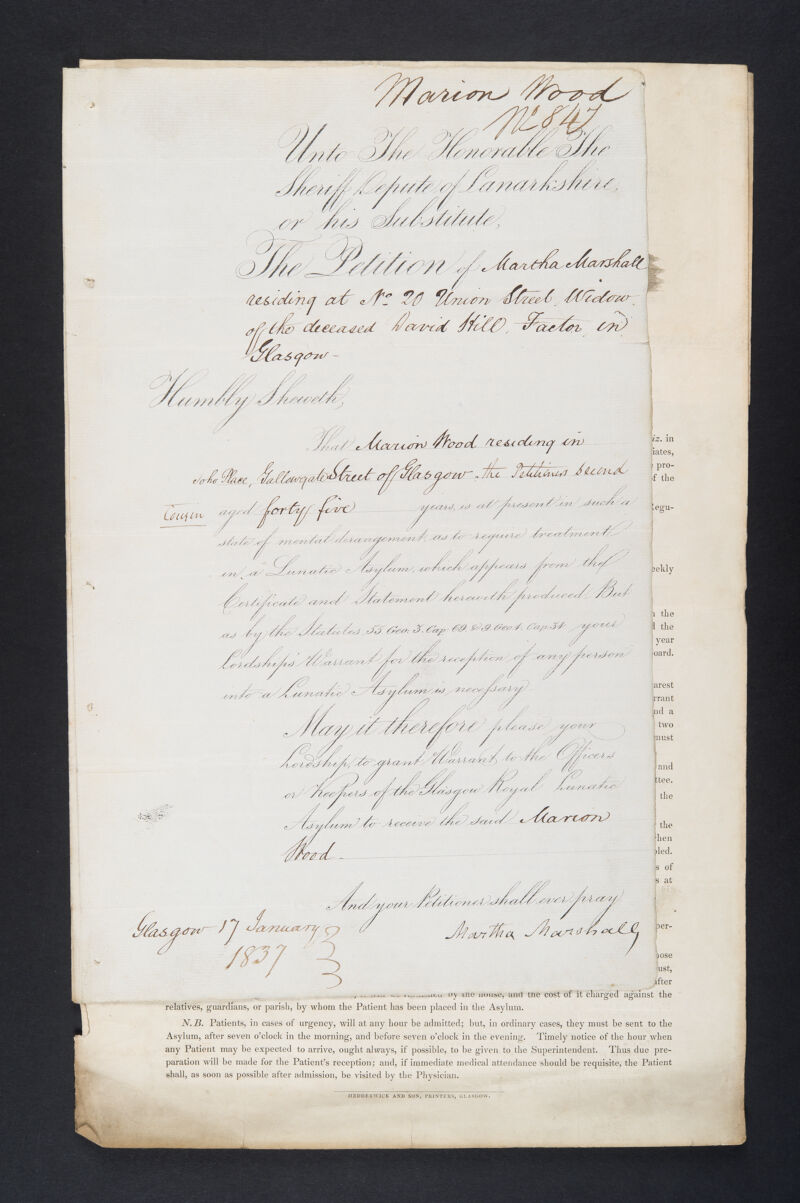 Marion Wood
No 847
Unto The Honorable The
Sheriff Depute of Lanarkshire,
or his Substitute,
The Petition of Martha Marshall
residing at No 20 Union Street, Widow
of the deceased David Hill, Factor in
Glasgow -
Humbly Sheweth,
That Marion Wood residing in
Soho Place, Gallowgate Street of Glasgow - the Petitioners second
Cousin aged forty five years, is at present in such a
state of mental derangement as to require treatment
in a Lunatic Asylum, which appears from the
Certificate and Statement herewith produced. But
as by the Statutes 55 Geo: 3. Cap 69 & 9. Geo 4. Cap 34 your
Lordship's Warrant for the reception of any person
into a Lunatic Asylum is necessary
May it therefore please your
Lordship, to grant Warrant, to the Officers
or Keepers of the Glasgow Royal Lunatic
Asylum to receive the said Marion
Wood -
And your Petitioner shall ever pray
Glasgow 17 January
1837
Martha Marshall
iz. in
iates,
pro-
f the
egu-
eekly
the
the
year
oard.
arest
rrant
nd a
two
must
and
ttee.
the
the
hen
led.
s of
s at
per-
ose
ust,
fter
by the house, and the cost of it charged against the
relatives, guardians, or parish, by whom the Patient has been placed in the Asylum.
N.B. Patients, in cases of urgency, will at any hour be admitted; but, in ordinary cases, they must be sent to the
Asylum, after seven o'clock in the morning, and before seven o'clock in the evening. Timely notice of the hour when
any Patient may be expected to arrive, ought always, if possible, to be given to the Superintendent. Thus due pre-
paration will be made for the Patient's reception; and, if immediate medical attendance should be requisite, the Patient
shall, as soon as possible after admission, be visited by the Physician.
HEDDERWICK AND SON, PRINTERS, GLASGOW.